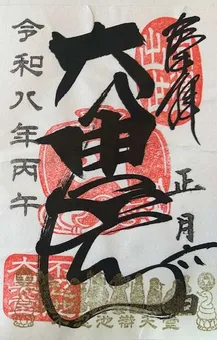 奉拝
正月 日
大黒天
令和八年丙午
池辯天堂
不忍池
大黒堂